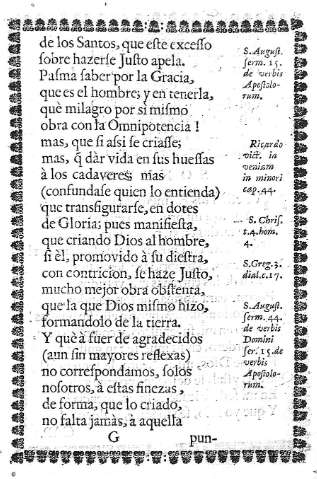 de los Santos, que este excesso
sobre hazerse Justo apela.
Pasma saber por la Gracia,
que es el hombre; y en tenerla,
què milagro por si mismo
obra con la Omnipotencia!
mas, que si assi se criasse;
mas, q̃ dàr vida en sus huessas
à los cadaveres mas
(confundase quien lo entienda)
que transfigurarse, en dotes
de Gloria; pues manifiesta,
que criando Dios al hombre,
si èl, promovido à su diestra,
con contricion, se haze Justo,
mucho mejor obra obstenta,
que la que Dios mismo hizo,
formandolo de la tierra.
Y què à fuer de agradecidos
(aun sin mayores reflexas)
no correspondamos, solos
nosotros, à estas finezas,
de forma, que lo criado,
no falta jamàs, à aquella
G pun-
S. August.
serm. 15.
de verbis
Apostolo-
rum.
Ricardo
vict. in
veniam
in minori
cap. 44.
S. Chris.
t. 4. hom.
4.
S. Greg. 3.
dial. c. 17.
S. August.
serm. 44.
de verbis
Domini
ser. 15. de
verbis
Apostolo-
rum.